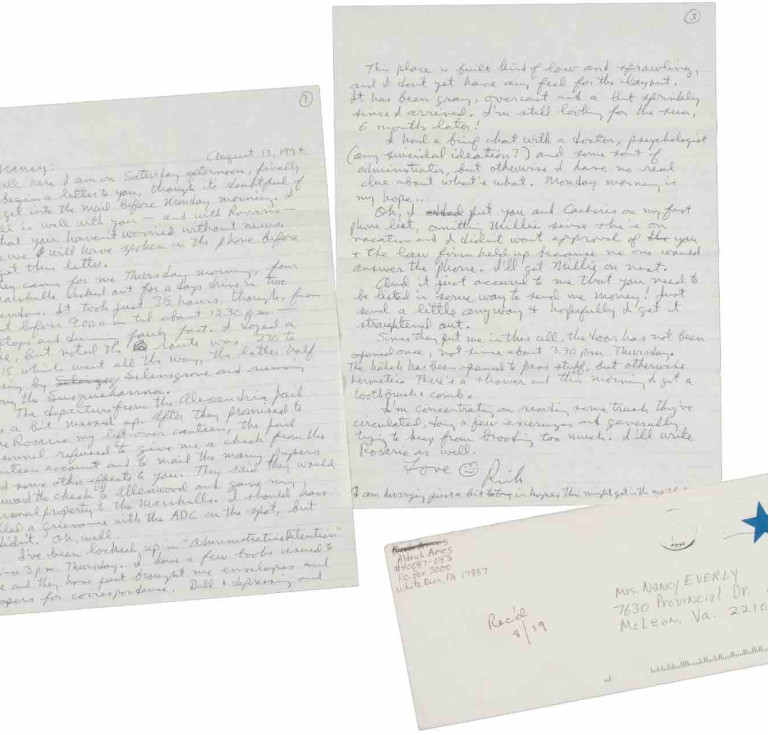 1
August 13, 1994
Nancy:
ll here I am on Saturday afternoon, finally
begin a letter to you, though its doubtful if
get into the mail before Monday morning. I
ll is well with you — and with Rosario —
that you haven't worried without news.
we I will have spoken on the phone before
get this letter.
ey came for me Thursday morning, four
arshalls decked out for a days drive in two
It took just 3½ hours, though, from
t before 9:00 a.m. til about 12:30 p.m. —
stops and driving fairly fast. I dozed a
e, but noted the route was 270 to
15 which went all the way, the latter half
ing by Selinsgrove and running
ng the Susquehanna.
The departure from the Alexandria jail
s a bit messed up. After they promised to
e Rosario my left-over canteen, the jail
ersonnel refused to give me a check from the
nteen account and to mail the many papers
d some other effects to you. They said they would
ward the check to Allenwood and gave my
ersonal property to the Marshalls. I should have
led a grievance with the ADC on the spot, but
didn't. Oh, well
I've been locked up in "Administrative Detention"
since 3 p.m. Thursday. I have a few books issued to
e and they have just brought me envelopes and
apers for correspondence. Dull & depressing and
3
This place is built kind of low and sprawling,
and I don't yet have any feel for the layout.
It has been gray, overcast and a bit sprinkly
since I arrived. I'm still looking for the sun,
6 months later!
I had a brief chat with a doctor, psychologist
(any suicidal ideation?) and some sort of
administrator, but otherwise I have no real
clue about what's what. Monday morning is
my hope...
Oh, I put you and Cacheris on my first
phone list, omitting Millie since she is on
vacation and I didn't want approval of you
+ the law firm held up because no one would
answer the phone. I'll get Millie on next.
And it just occurred to me that you need to
be listed in some way to send me money! Just
send a little anyway & hopefully I'd get it
straightened out.
Since they put me in this cell, the door has not been
opened once, not since about 3:30 p.m. Thursday.
The hatch has been opened to pass stuff, but otherwise
hermetic. There's a shower and this morning I got a
toothbrush & comb.
I'm concentrating on reading some trash they've
circulated, doing a few exercises and generally
trying to keep from brooding too much. I'll write
Rosario as well.
Love ☺ Rick
I am hurrying just a bit today in hopes this might get in the mail
Aldrich Ames
#40087-083
P.O. Box 3000
White Deer, PA 17887
Rec'd
8/19
Mrs. Nancy Everly
7630 Provincial Dr.
McLean, Va. 2210